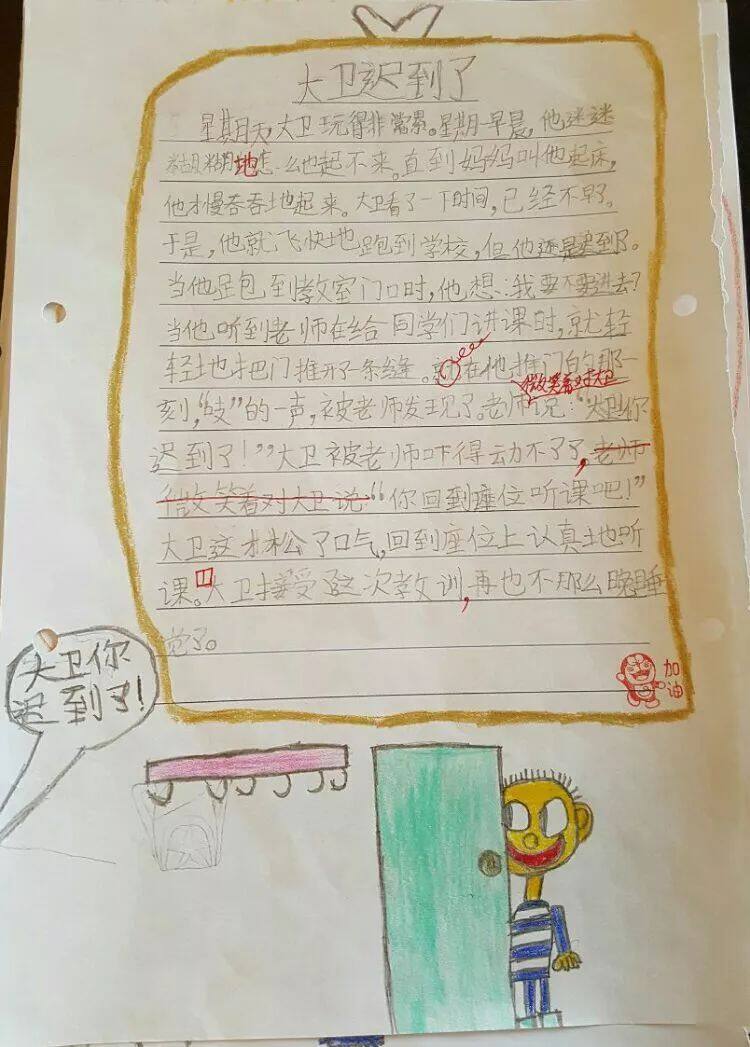 大卫迟到了
星期天，大卫玩得非常累。星期一早晨，他迷迷
糊糊地怎么也起不来。直到妈妈叫他起床，
他才慢吞吞地起来。大卫看了一下时间，已经不早了。
于是，他就飞快地跑到学校，但他还是迟到了。
当他跑到教室门口时，他想：我要不要进去？
当他听到老师在给同学们讲课时，就轻
轻地把门推开了一条缝。就在他推门的那一
微笑着对大卫
刻，“吱”的一声，被老师发现了。老师说：“大卫你
迟到了！”大卫被老师吓得动不了了，老师
微笑着对大卫说“你回到座位听课吧！”
大卫这才松了口气，回到座位上认真地听
课。大卫接受了这次教训，再也不那么晚睡
觉了。
加油
大卫你
迟到了！